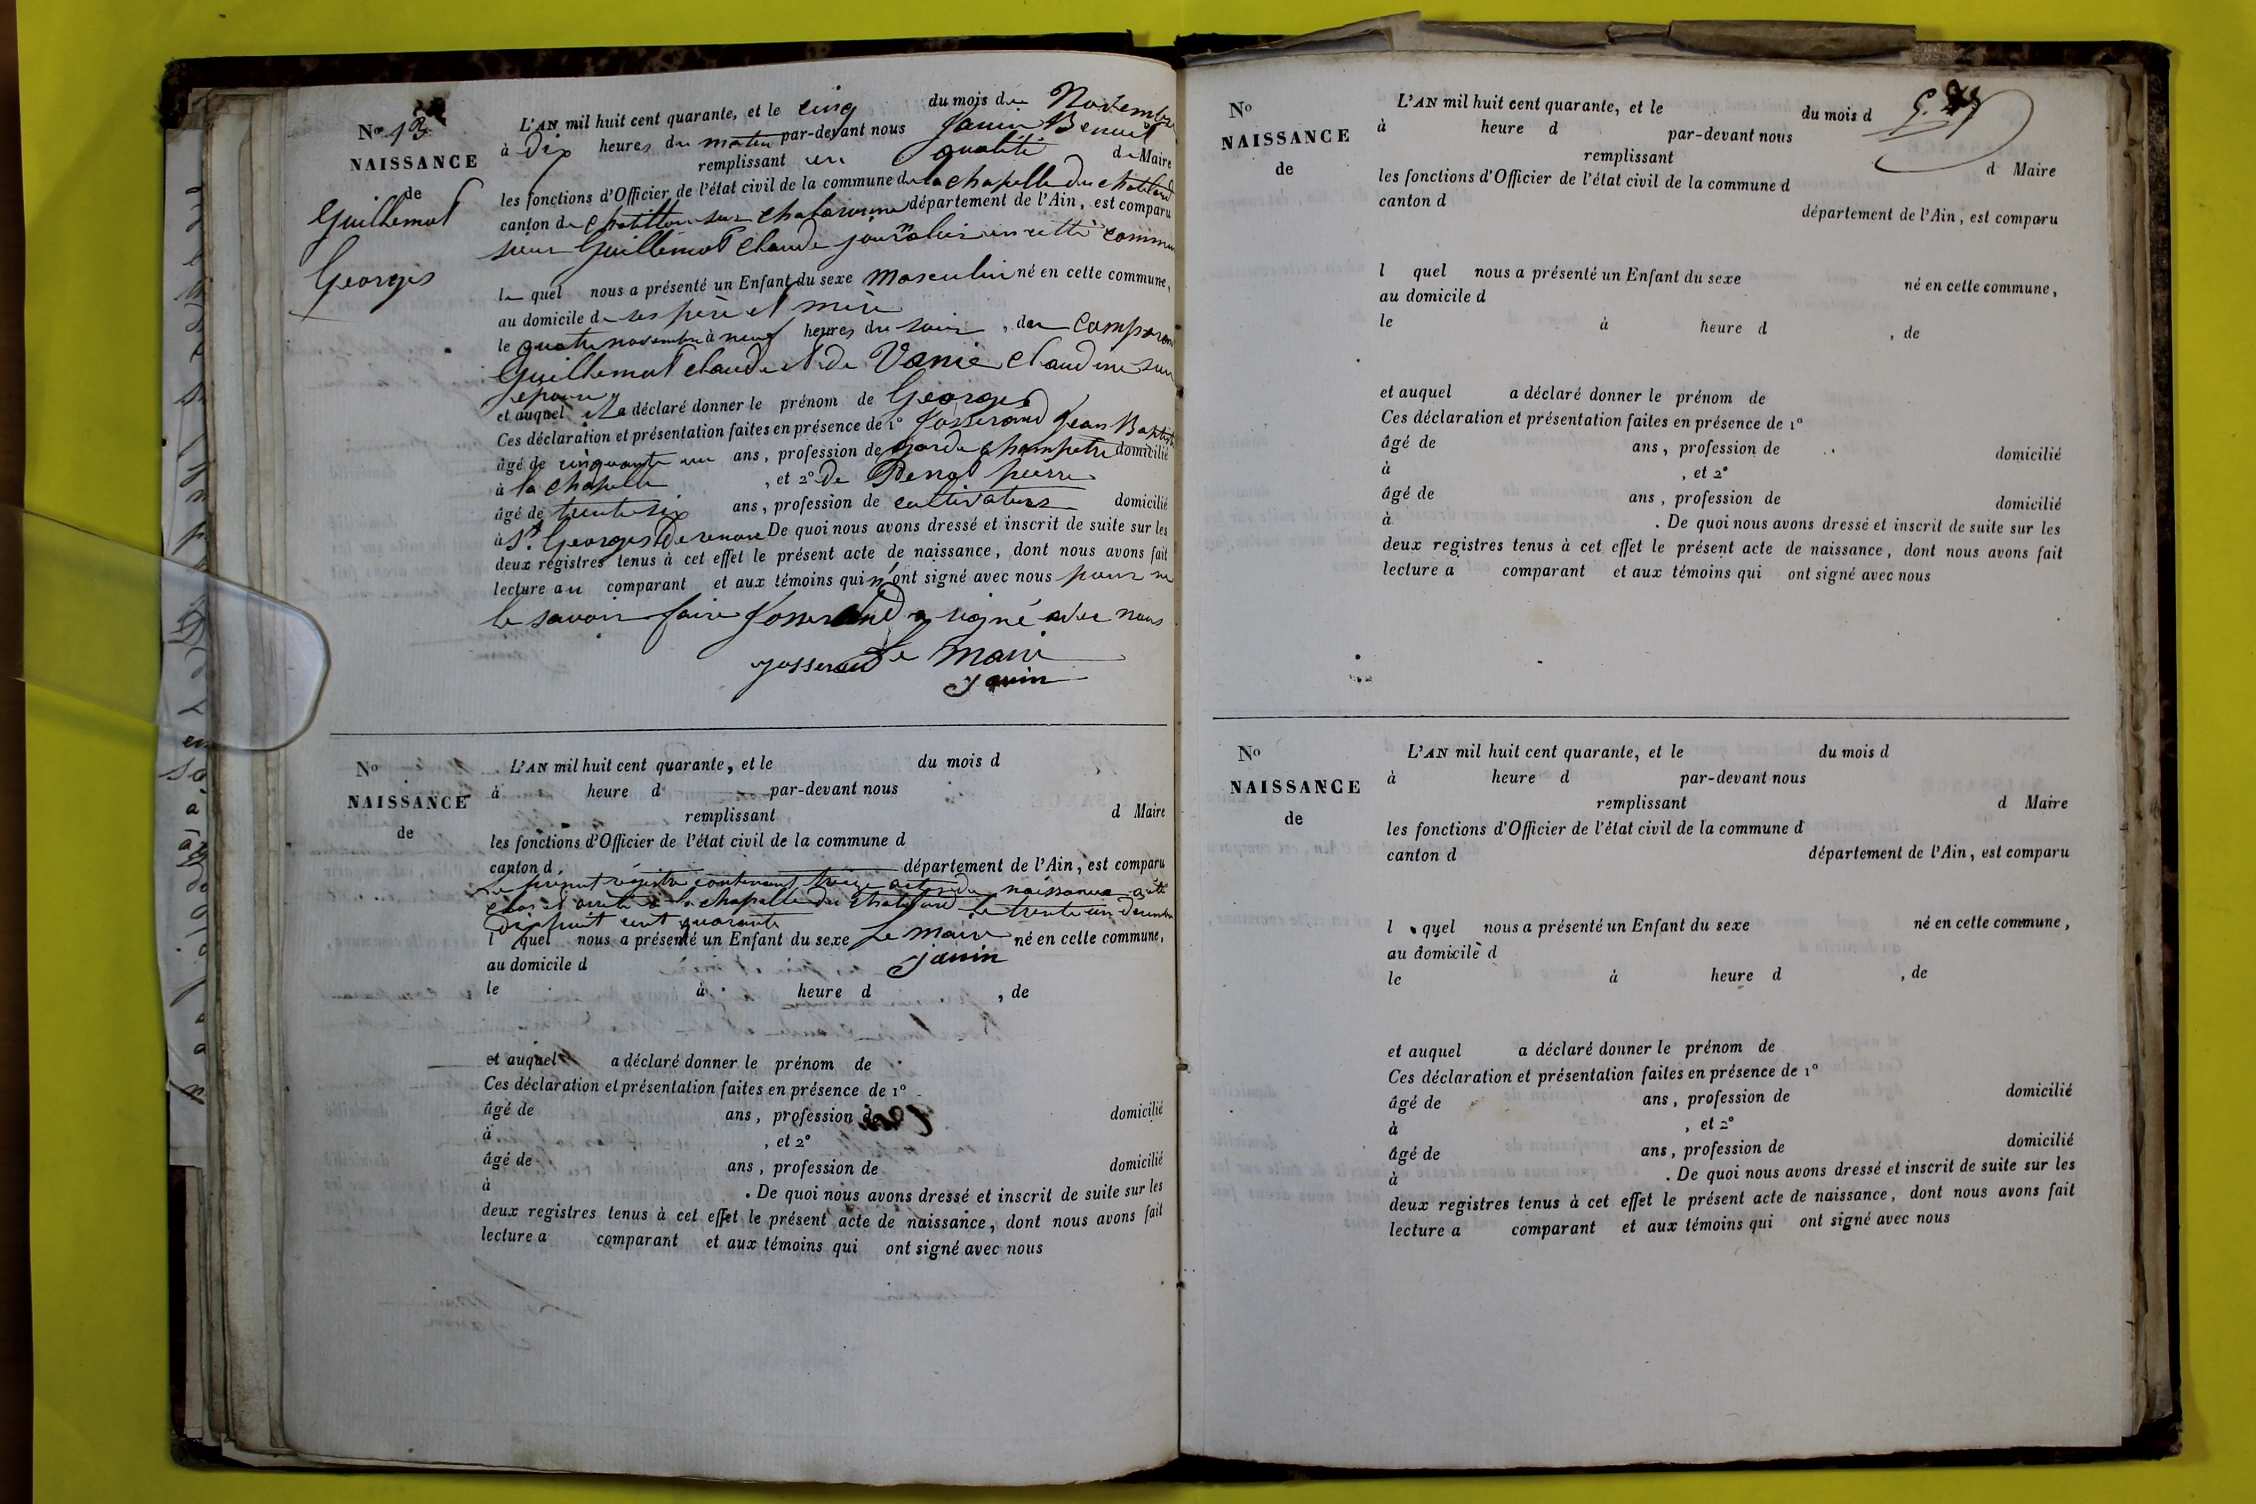 No 13
NAISSANCE
de
Guillemot
Georges
L'AN mil huit cent quarante, et le cinq du mois de Novembre
à Dix heures du matin par-devant nous Janin Benoit
remplissant en qualité de Maire
les fonctions d'Officier de l'état civil de la commune de la Chapelle du Chatelard
canton de Chatillon sur Chalaronne département de l'Ain, est comparu
sieur Guillemot Claude journalier en cette commune
le quel nous a présenté un Enfant du sexe masculin né en cette commune,
au domicile de ses père et mère
le quatre novembre à neuf heures du soir, de comparant
Guillemot Claude et de Vanie Claudine son
épouse
et auquel il a déclaré donner le prénom de Georges
Ces déclaration et présentation faites en présence de 1º Josserand Jean Baptiste
âgé de cinquante un ans, profession de garde champetre domicilié
à la Chapelle, et 2º de Penat pierre
âgé de trente six ans, profession de cultivateurs domicilié
à St. Georges de renon De quoi nous avons dressé et inscrit de suite sur les
deux registres tenus à cet effet le présent acte de naissance, dont nous avons fait
lecture au comparant et aux témoins qui n'ont signé avec nous pour ne
le savoir faire Josserand a signé avec nous
Josserand Le Maire
Janin
No
NAISSANCE
de
L'AN mil huit cent quarante, et le du mois d
à heure d par-devant nous
remplissant d Maire
les fonctions d'Officier de l'état civil de la commune d
canton d département de l'Ain, est comparu
Le present registre contenant treize actes de naissance a été
clos et arrêté à la chapelle du Chatelard le trente un decembre
Dix huit cent quarante
l quel nous a présenté un Enfant du sexe Le maire né en cette commune,
au domicile d Janin
le à heure d , de
et auquel a déclaré donner le prénom de
Ces déclaration et présentation faites en présence de 1º
âgé de ans, profession de domicilié
à , et 2º
âgé de ans, profession de domicilié
à . De quoi nous avons dressé et inscrit de suite sur les
deux registres tenus à cet effet le présent acte de naissance, dont nous avons fait
lecture a comparant et aux témoins qui ont signé avec nous
No
NAISSANCE
de
L'AN mil huit cent quarante, et le du mois d
à heure d par-devant nous
remplissant d Maire
les fonctions d'Officier de l'état civil de la commune d
canton d département de l'Ain, est comparu
l quel nous a présenté un Enfant du sexe né en cette commune,
au domicile d
le à heure d , de
et auquel a déclaré donner le prénom de
Ces déclaration et présentation faites en présence de 1º
âgé de ans, profession de domicilié
à , et 2º
âgé de ans, profession de domicilié
à . De quoi nous avons dressé et inscrit de suite sur les
deux registres tenus à cet effet le présent acte de naissance, dont nous avons fait
lecture a comparant et aux témoins qui ont signé avec nous
No
NAISSANCE
de
L'AN mil huit cent quarante, et le du mois d
à heure d par-devant nous
remplissant d Maire
les fonctions d'Officier de l'état civil de la commune d
canton d département de l'Ain, est comparu
l quel nous a présenté un Enfant du sexe né en cette commune,
au domicile d
le à heure d , de
et auquel a déclaré donner le prénom de
Ces déclaration et présentation faites en présence de 1º
âgé de ans, profession de domicilié
à , et 2º
âgé de ans, profession de domicilié
à . De quoi nous avons dressé et inscrit de suite sur les
deux registres tenus à cet effet le présent acte de naissance, dont nous avons fait
lecture a comparant et aux témoins qui ont signé avec nous